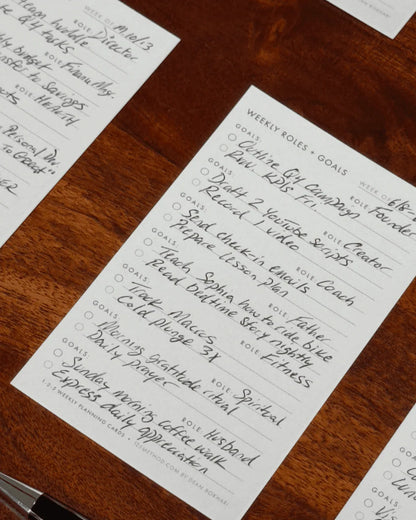 WEEK OF: M.10/13
Team huddle
ROLE: Director
Q4 tasks
budget
ROLE: Finance Mgr.
transfer to savings
ROLE: Health
Personal Dev.
To Great"
WEEKLY ROLES + GOALS
WEEK OF: 6/8
GOALS:
ROLE: Founder
Outline Q4 campaign
Rev. KPIs Fri.
GOALS:
ROLE: Creator
Draft 2 YouTube scripts
Record 1 video
GOALS:
ROLE: Coach
Send check-in emails
Prepare lesson plan
GOALS:
ROLE: Father
Teach Sophia how to ride bike
Read bedtime story nightly
GOALS:
ROLE: Fitness
Track Macros
Cold plunge 3x
GOALS:
ROLE: Spiritual
Morning gratitude ritual
Daily prayer
GOALS:
ROLE: Husband
Sunday morning coffee walk
Express daily appreciation
1-2-5 WEEKLY PLANNING CARDS • 125METHOD.COM BY DEAN BOKHARI
GOALS:
GOALS:
GOALS: